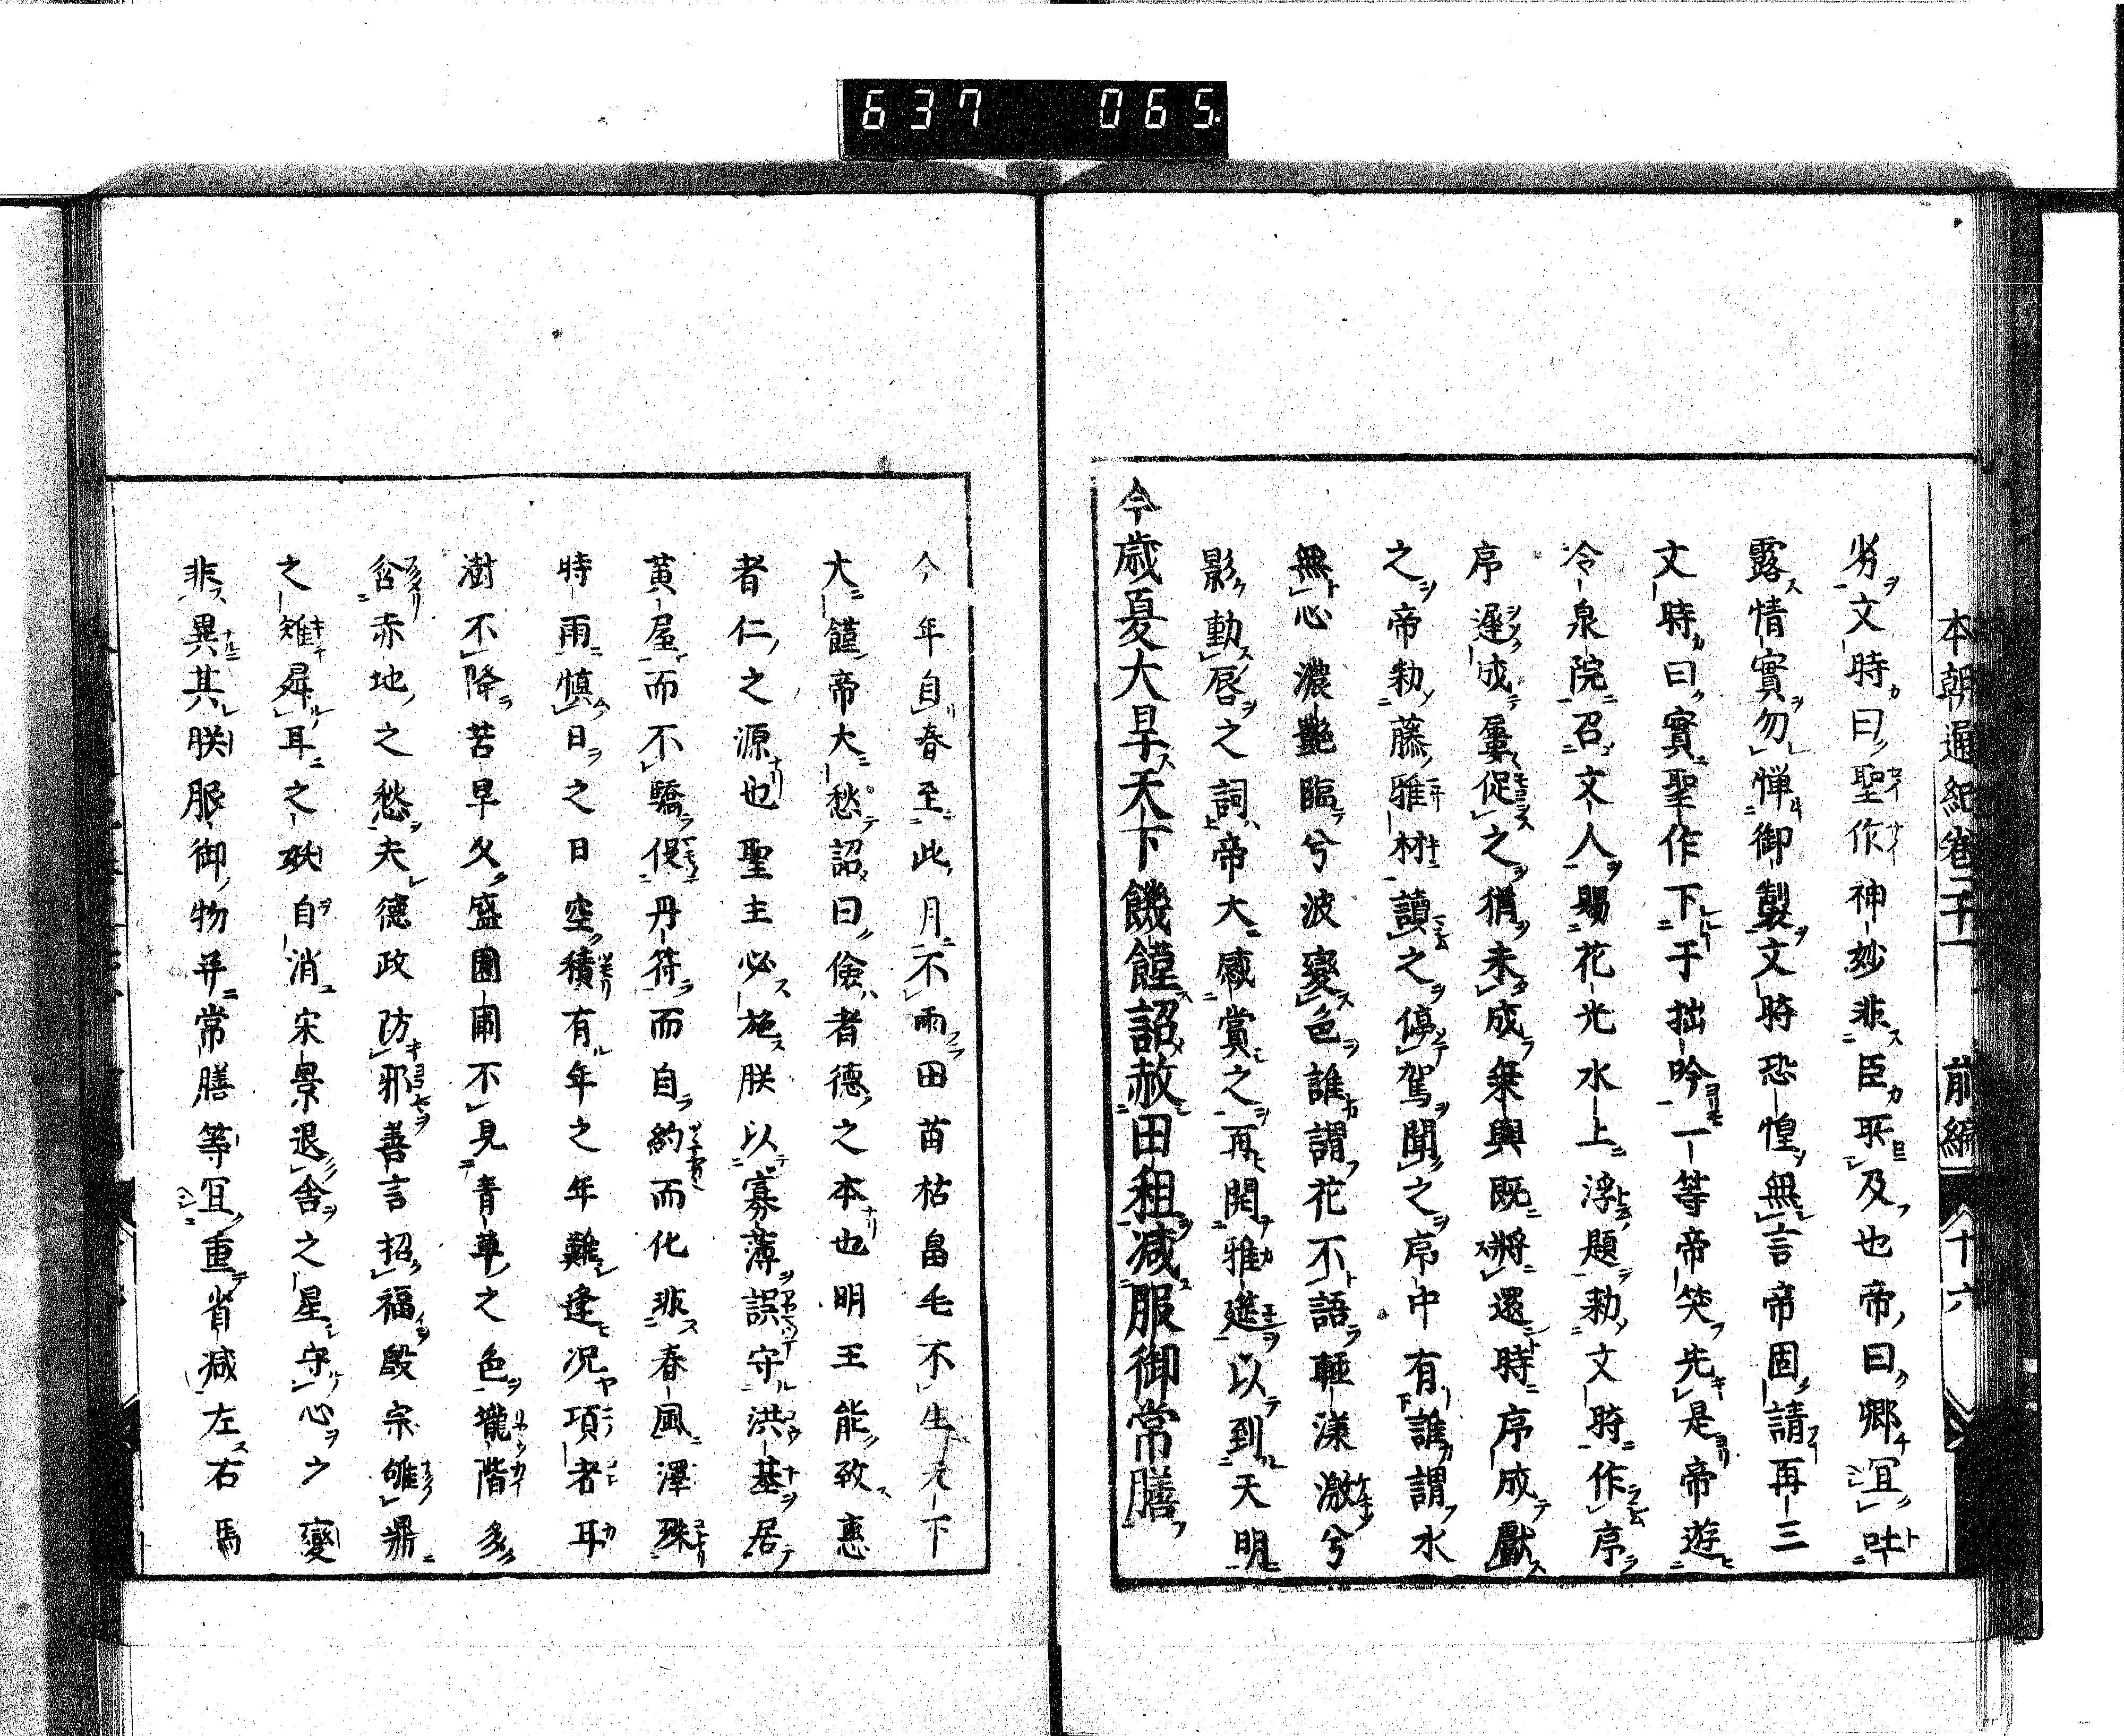 637 065
本朝通紀卷二十一 前編 八十六
劣文時曰聖作神妙非臣所及也帝曰卿冝吐
露情實勿憚御製文時恐惶無言帝固請再三
文時曰實聖作下于拙吟一等帝笑先是帝遊
冷泉院召文人賜花光水上浮題勅文時作序
序遲成屢促之猶未成乗輿既將還時序成獻
之帝勅藤雅材讀之停駕聞之序中有誰謂水
無心濃艷臨兮波變色誰謂花不語輕漾激兮
影動唇之詞帝大感賞之再開雅筵以到天明
今歳夏大旱天下饑饉詔赦田租減服御常膳
今年自春至此月不雨田苗枯畠毛不生天下
大饉帝大愁詔曰儉者德之本也明王能致惠
者仁之源也聖主必施朕以寡薄誤守洪基居
黄屋而不驕侵丹符而自約而化非春風澤殊
時雨愼日之日空積有年之年難逢况項者耳
澍不降苦旱久盛園圃不見青草之色壠階多
含赤地之愁夫德政防邪善言招福殷宗雊鼎
之雉㝷耳之妖自消宋景退舍之星守心之變
非異其朕服御物并常膳等冝重省减左右馬